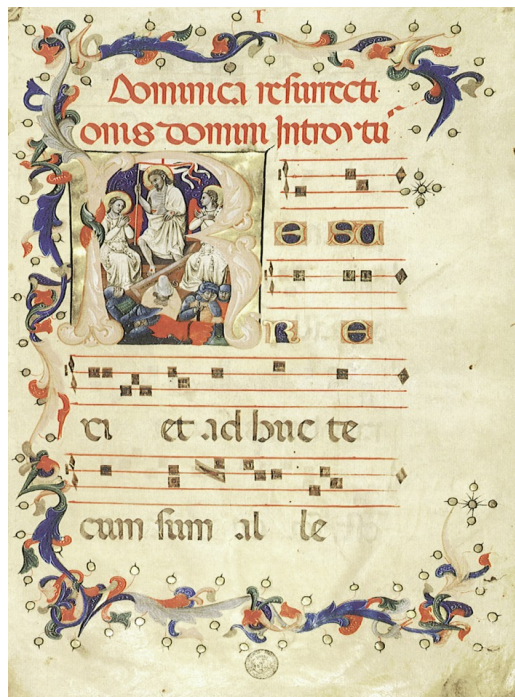 I
Dominica resurrecti
onis domini Introytu
R e su
r e
xi et ad huc te
cum sum al le